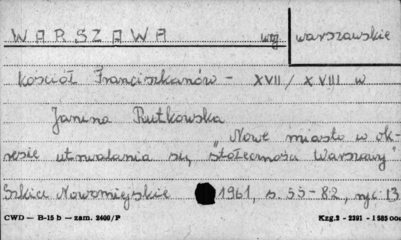 WARSZAWA woj. warszawskie
Kościół Franciszkanów - XVII / XVIII w
Janina Rutkowska
"Nowe miasto w ok-
resie utrwalania się stołeczności Warszawy"
Szkice Nowomiejskie 1961, s. 55-82, ryc. 13
CWD — B-15 b — zam. 2400/P Kzg.2 - 2291 - 1 585 000